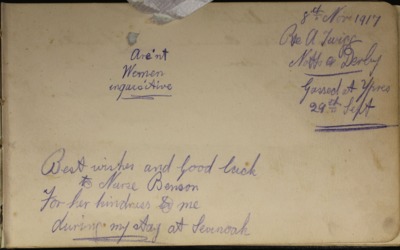 8th Nov 1917
Pte A Twigg
Notts & Derby
Gassed at Ypres
29th Sept
Are'nt
Women
inquisitive
Best wishes and Good luck
to Nurse Benson
For her kindness to me
during my stay at Sevnoak